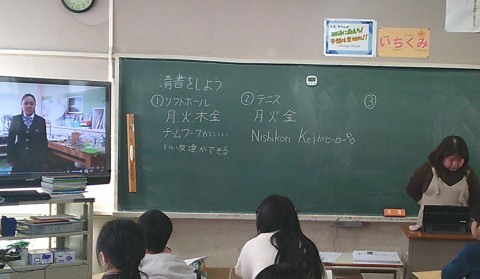 いちくみ
清書をしよう
①ソフトボール
月火木金
チームワークがいい
いい友達ができる
②テニス
月火金
Nishikori Keiがヒーロー
③